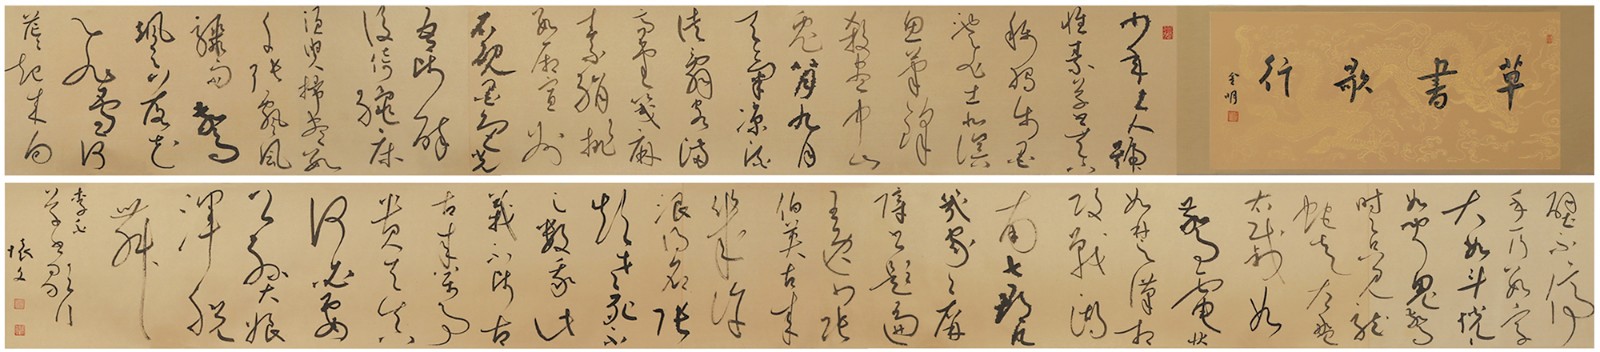 草書歌行
少年上人號
懷素草書天下
稱獨步墨
池飛出北溟
魚筆鋒
殺盡中山
兔八月九月
天氣涼酒
徒詞客滿
高堂箋麻
素絹排
數廂宣州
石硯墨色光
吾師醉
後倚繩床
須臾掃盡數
千張飄風
驟雨驚
颯颯落花
飛雪何
茫茫起來向
壁不停
手一行數字
大如斗怳怳
如聞鬼驚
時時只見龍
蛇走左盤
右蹙如
驚電狀
如楚漢相
攻戰湖
南七郡凡
幾家家屏
障書題遍
王逸少張
伯英古來
幾許
浪得名張
顛老死不
足數我師此
義不師古
古來萬事
貴天生
何必要
公孫大娘
渾脫
舞
李白
草書歌行